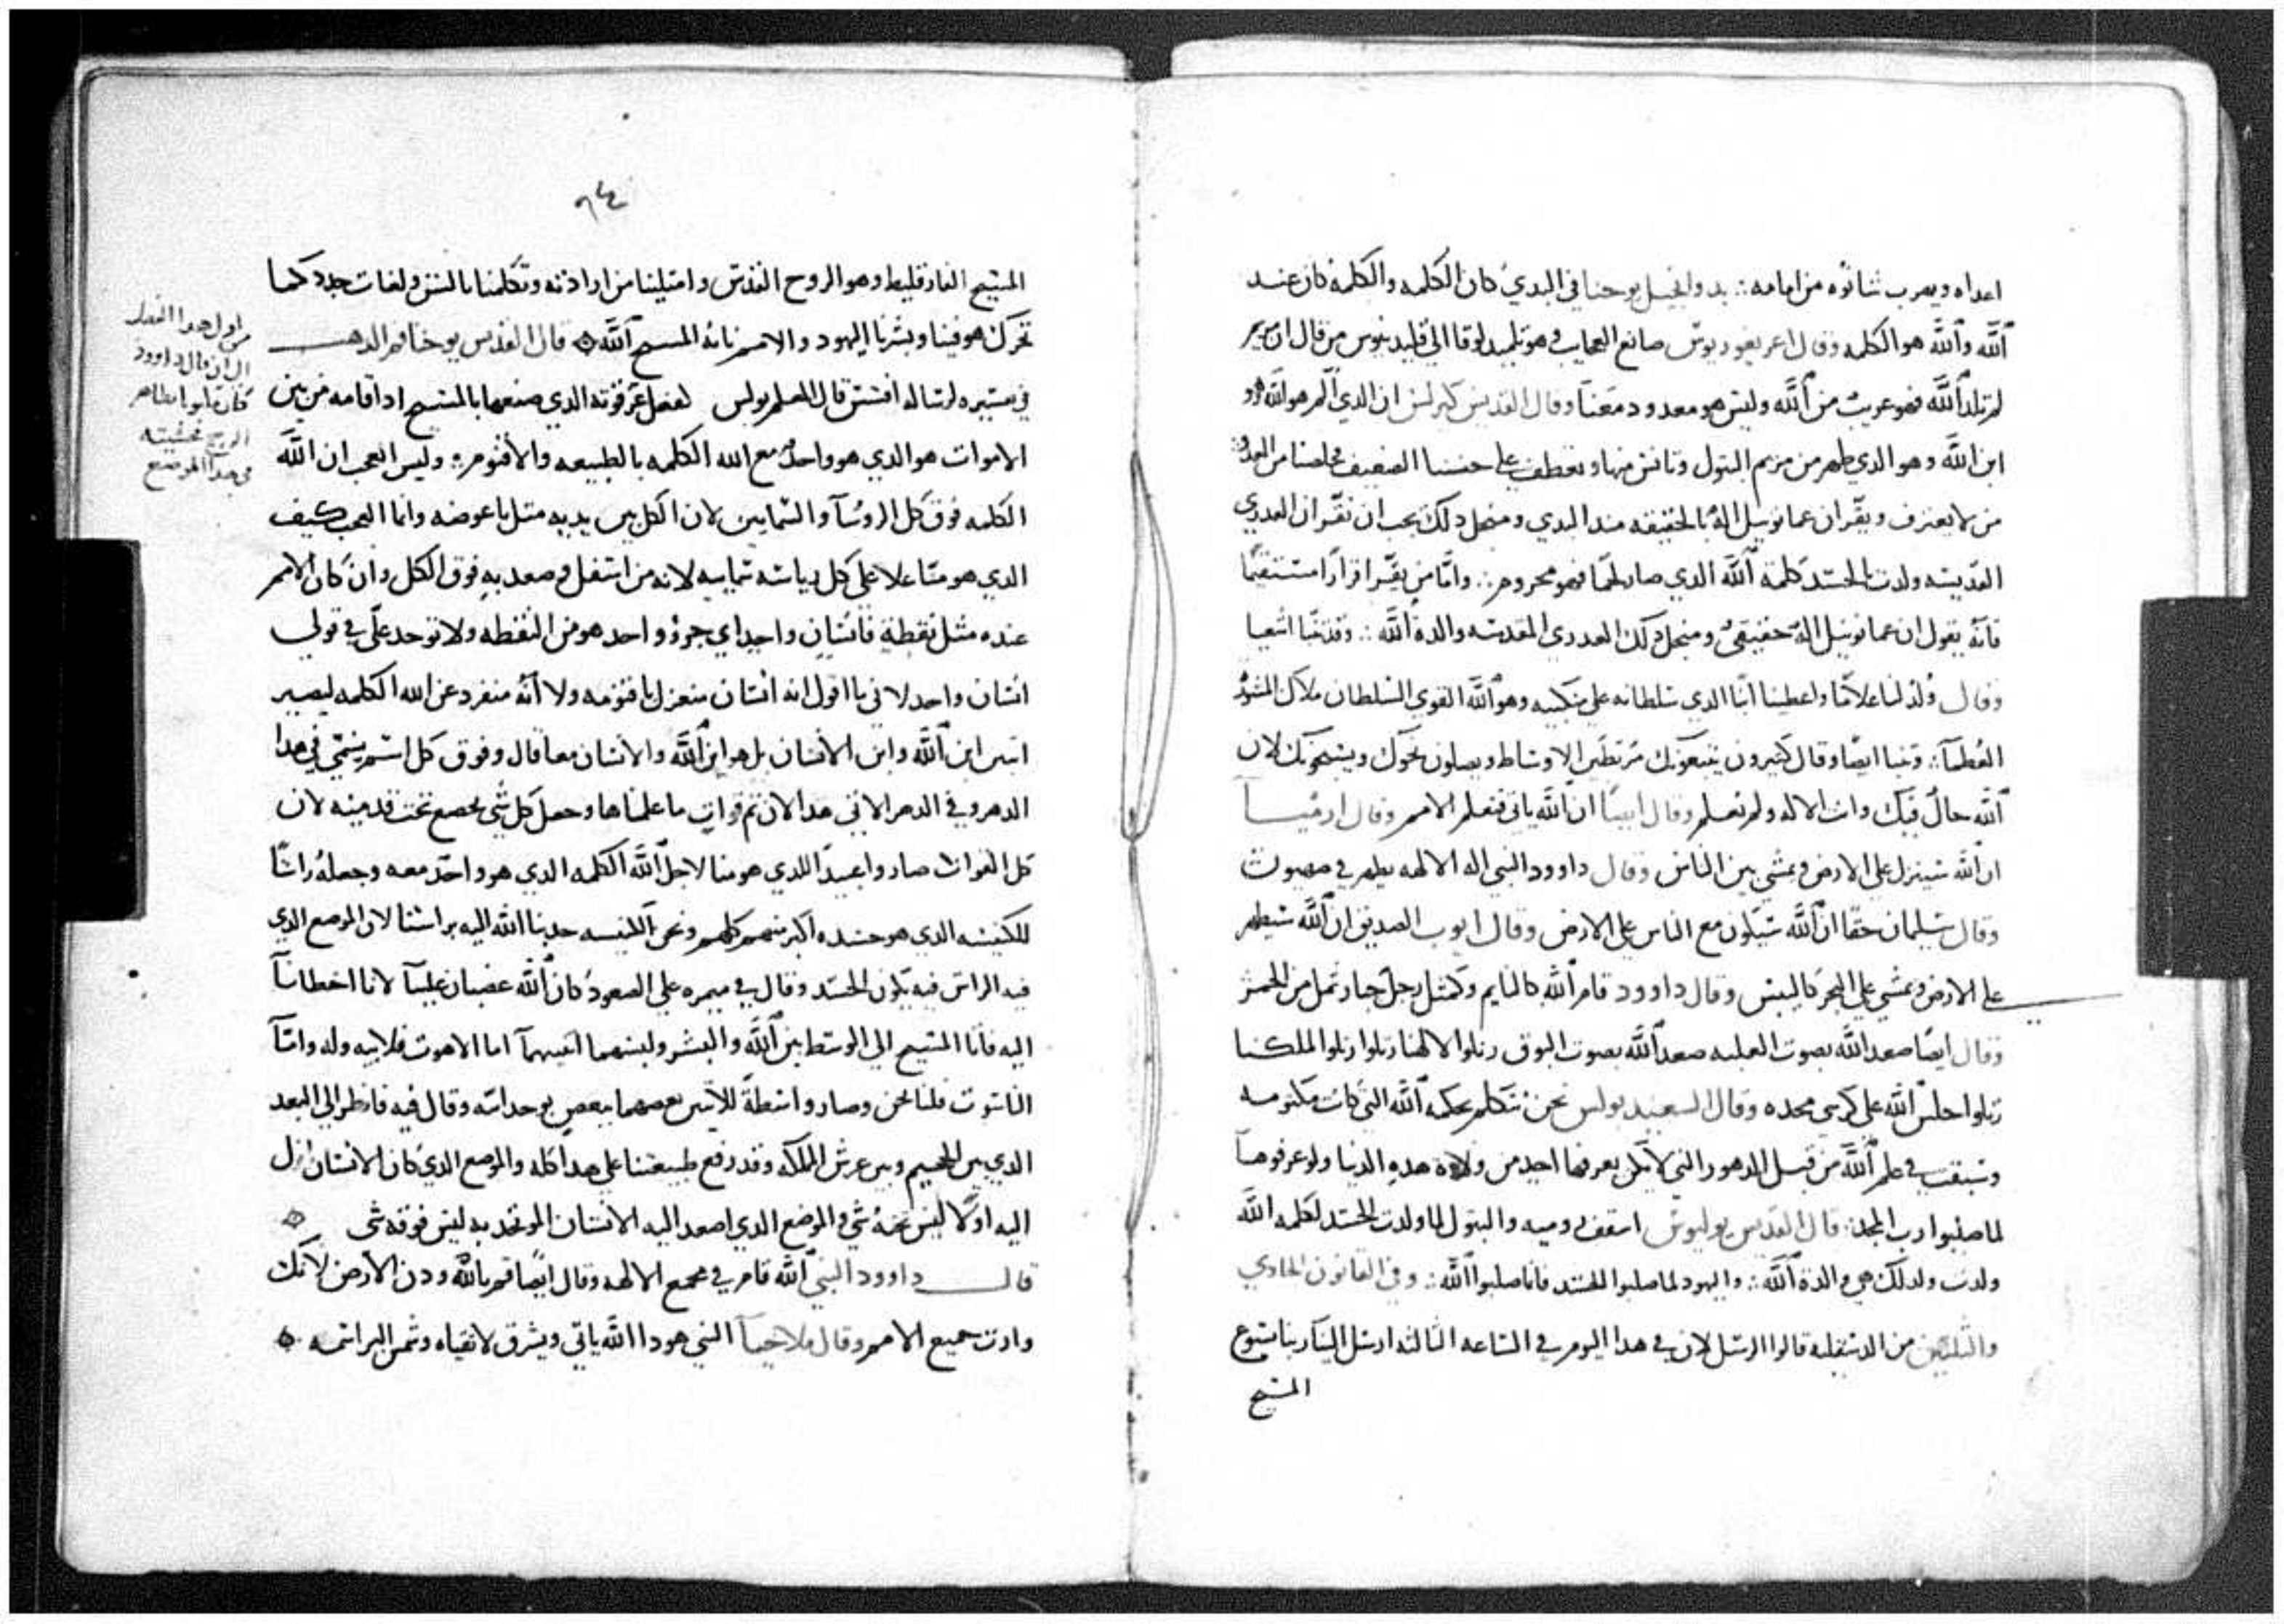 اعداه ويهرب شانوه من امامه ∴ بدو انجيل يوحنا في البدي كان الكلمه والكلمه كان عند
الله والله هو الكلمه وقال اغريغوريوس صانع العجايب وهو تلميد لوقا الي فليد ينوس من قال ان مريم
لم تلد الله فهو غريب من الله وليس هو معدود معنا وقال القديس كيرلس ان الدي الم هو الله وهو
ابن الله وهو الدي ظهر من مريم البتول وتانس منها وتعطف علي جنسنا الضعيف مخلصنا من العدو ∴
من لا يعترف ويقر ان عمانوييل اله بالحقيقه مند البدي ومنجل دلك يجب ان نقر ان العدري
القديسه ولدت بالجسد كلمة الله الدي صار لحما فهو محروم ∴ واما من يقر اقرارا مستقيما
فانه يقول ان عمانوييل اله حقيقي ومنجل دلك العدري المقدسه والدة الله ∴ وقد تنبا اشعيا
وقال ولد لنا غلاما واعطينا ابنا الدي سلطانه علي منكبيه وهو الله القوي السلطان ملاك المشورة
العظما ∴ وتنبا ايضا وقال كثيرون يتبعونك مرتطين الاوساط ويصلون نحوك ويسبحونك لان
الله حال فيك وانت الاله ولم نعلم وقال ايضا ان الله ياتي فتعلم الامم وقال ارميا
ان الله سينزل علي الارض ويمشي بين الناس وقال داوود النبي اله الالهه يظهر في صهيون
وقال سليمان حقا ان الله سيكون مع الناس علي الارض وقال ايوب الصديق ان الله سيظهر
علي الارض ويمشي علي البحر كاليبس وقال داوود قام الله كالنايم وكمثل رجل جبار ثمل من الخمر
وقال ايضا صعد الله بصوت الغلبه صعد الله بصوت البوق رتلوا لالهنا رتلوا رتلوا لملكنا
رتلوا جلس الله علي كرسي مجده وقال السعيد بولس نحن نتكلم بحكمه الله التي كانت مكتومه
وسبقت في علم الله من قبل الدهور التي لم يكن يعرفها احد من ولاة هده الدنيا ولو عرفوها
لما صلبوا رب المجد ∴ قال القديس يوليوس اسقف روميه والبتول لما ولدت الجسد لكلمه الله
ولدت ولدلك هي والدة الله ∴ واليهود لما صلبوا الجسد فانما صلبوا الله ∴ وفي القانون الحادي
والثلثين من الدسقليه قالوا الرسل لان في هدا اليوم في الساعه الثالثه ارسل الينا ربنا يسوع
المسيح
٩٤
المسيح الفارقليط وهو الروح القدس وامتلينا من ارادته وتكلمنا بالسن ولغات جدد كما
تحرك هو فينا وبشرنا اليهود والامم بانه المسيح الله قال القديس يوحنا فم الدهب
في تفسيره لرسالة افسس قال المعلم بولس لفعل عز قوته الدي صنعها بالمسيح اد اقامه من بين
الاموات هو الدي هو واحد مع الله الكلمه بالطبيعه والاقنوم ∴ وليس العجب ان الله
الكلمه فوق كل الروسا والسمايين لان الكل بين يديه مثل باعوضه وانما العجب كيف
الدي هو منا علا علي كل رياسه سماييه لانه من اسفل وصعد به فوق الكل وان كان الامم
عنده مثل نقطة فانسان واحد اي جزو واحد هو من النقطه ولا توجد علي في قولي
انسان واحد لاني ما اقول انه انسان منعزل باقنومه ولا انه منفرد عن الله الكلمه ليصير
اتنين ابن الله وابن الانسان بل هو ابن الله والانسان معا قال وفوق كل اسم يسمي في هدا
الدهر وفي الدهر الاتي هدا لان تم قوات ما علمناها وجعل كل شي يخضع تحت قدميه لان
كل القوات صاروا عبيدا للدي هو منا لاجل الله الكلمه الدي هو واحد معه وجعله راسا
للكنيسه الدي هو جسده اكبر منهم كلهم ونحن الكنيسه جدبنا الله اليه براسنا لان الموضع الدي
فيه الراس فيه يكون الجسد وقال في ميمره علي الصعود كان الله غضبان علينا لانا اخطانا
اليه فاتا المسيح الي الوسط بين الله والبشر ولبسهما اتنيهما اما الاهوت فلابيه وله واما
الناسوت فلنا نحن وصار واسطة للاتنين بعضهما ببعض بوحدانيته وقال فيه فانظر الي البعد
الدي بين الجحيم وبين عرش المملكه وقد رفع طبيعتنا علي هدا كله والموضع الدي كان الانسان نزل
اليه اولا ليس تحته شي والموضع الدي اصعد اليه الانسان المتوحد به ليس فوقه شي
قال داوود النبي الله قام في مجمع الالهه وقال ايضا قم يالله ودن الارض لانك
وارث جميع الامم وقال ملاخيا النبي هودا الله ياتي ويشرق لاتقياه وشمس البر اسمه
من اول هدا الفصل
الي ان قال داوود
كان
في هدا الموضع